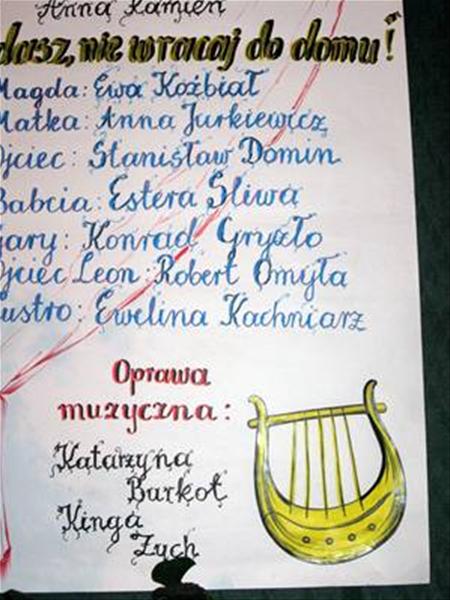 Anna Kamień
dasz, nie wracaj do domu!
Magda: Ewa Koźbiał
Matka: Anna Jurkiewicz
Ojciec: Stanisław Domin
Babcia: Estera Śliwa
Gary: Konrad Gryzło
Ojciec Leon: Robert Omyła
Lustro: Ewelina Kachniarz
Oprawa
muzyczna:
Katarzyna
Burkot
Kinga
Zych